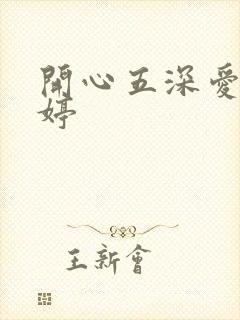 開心五深愛
婷
王新會